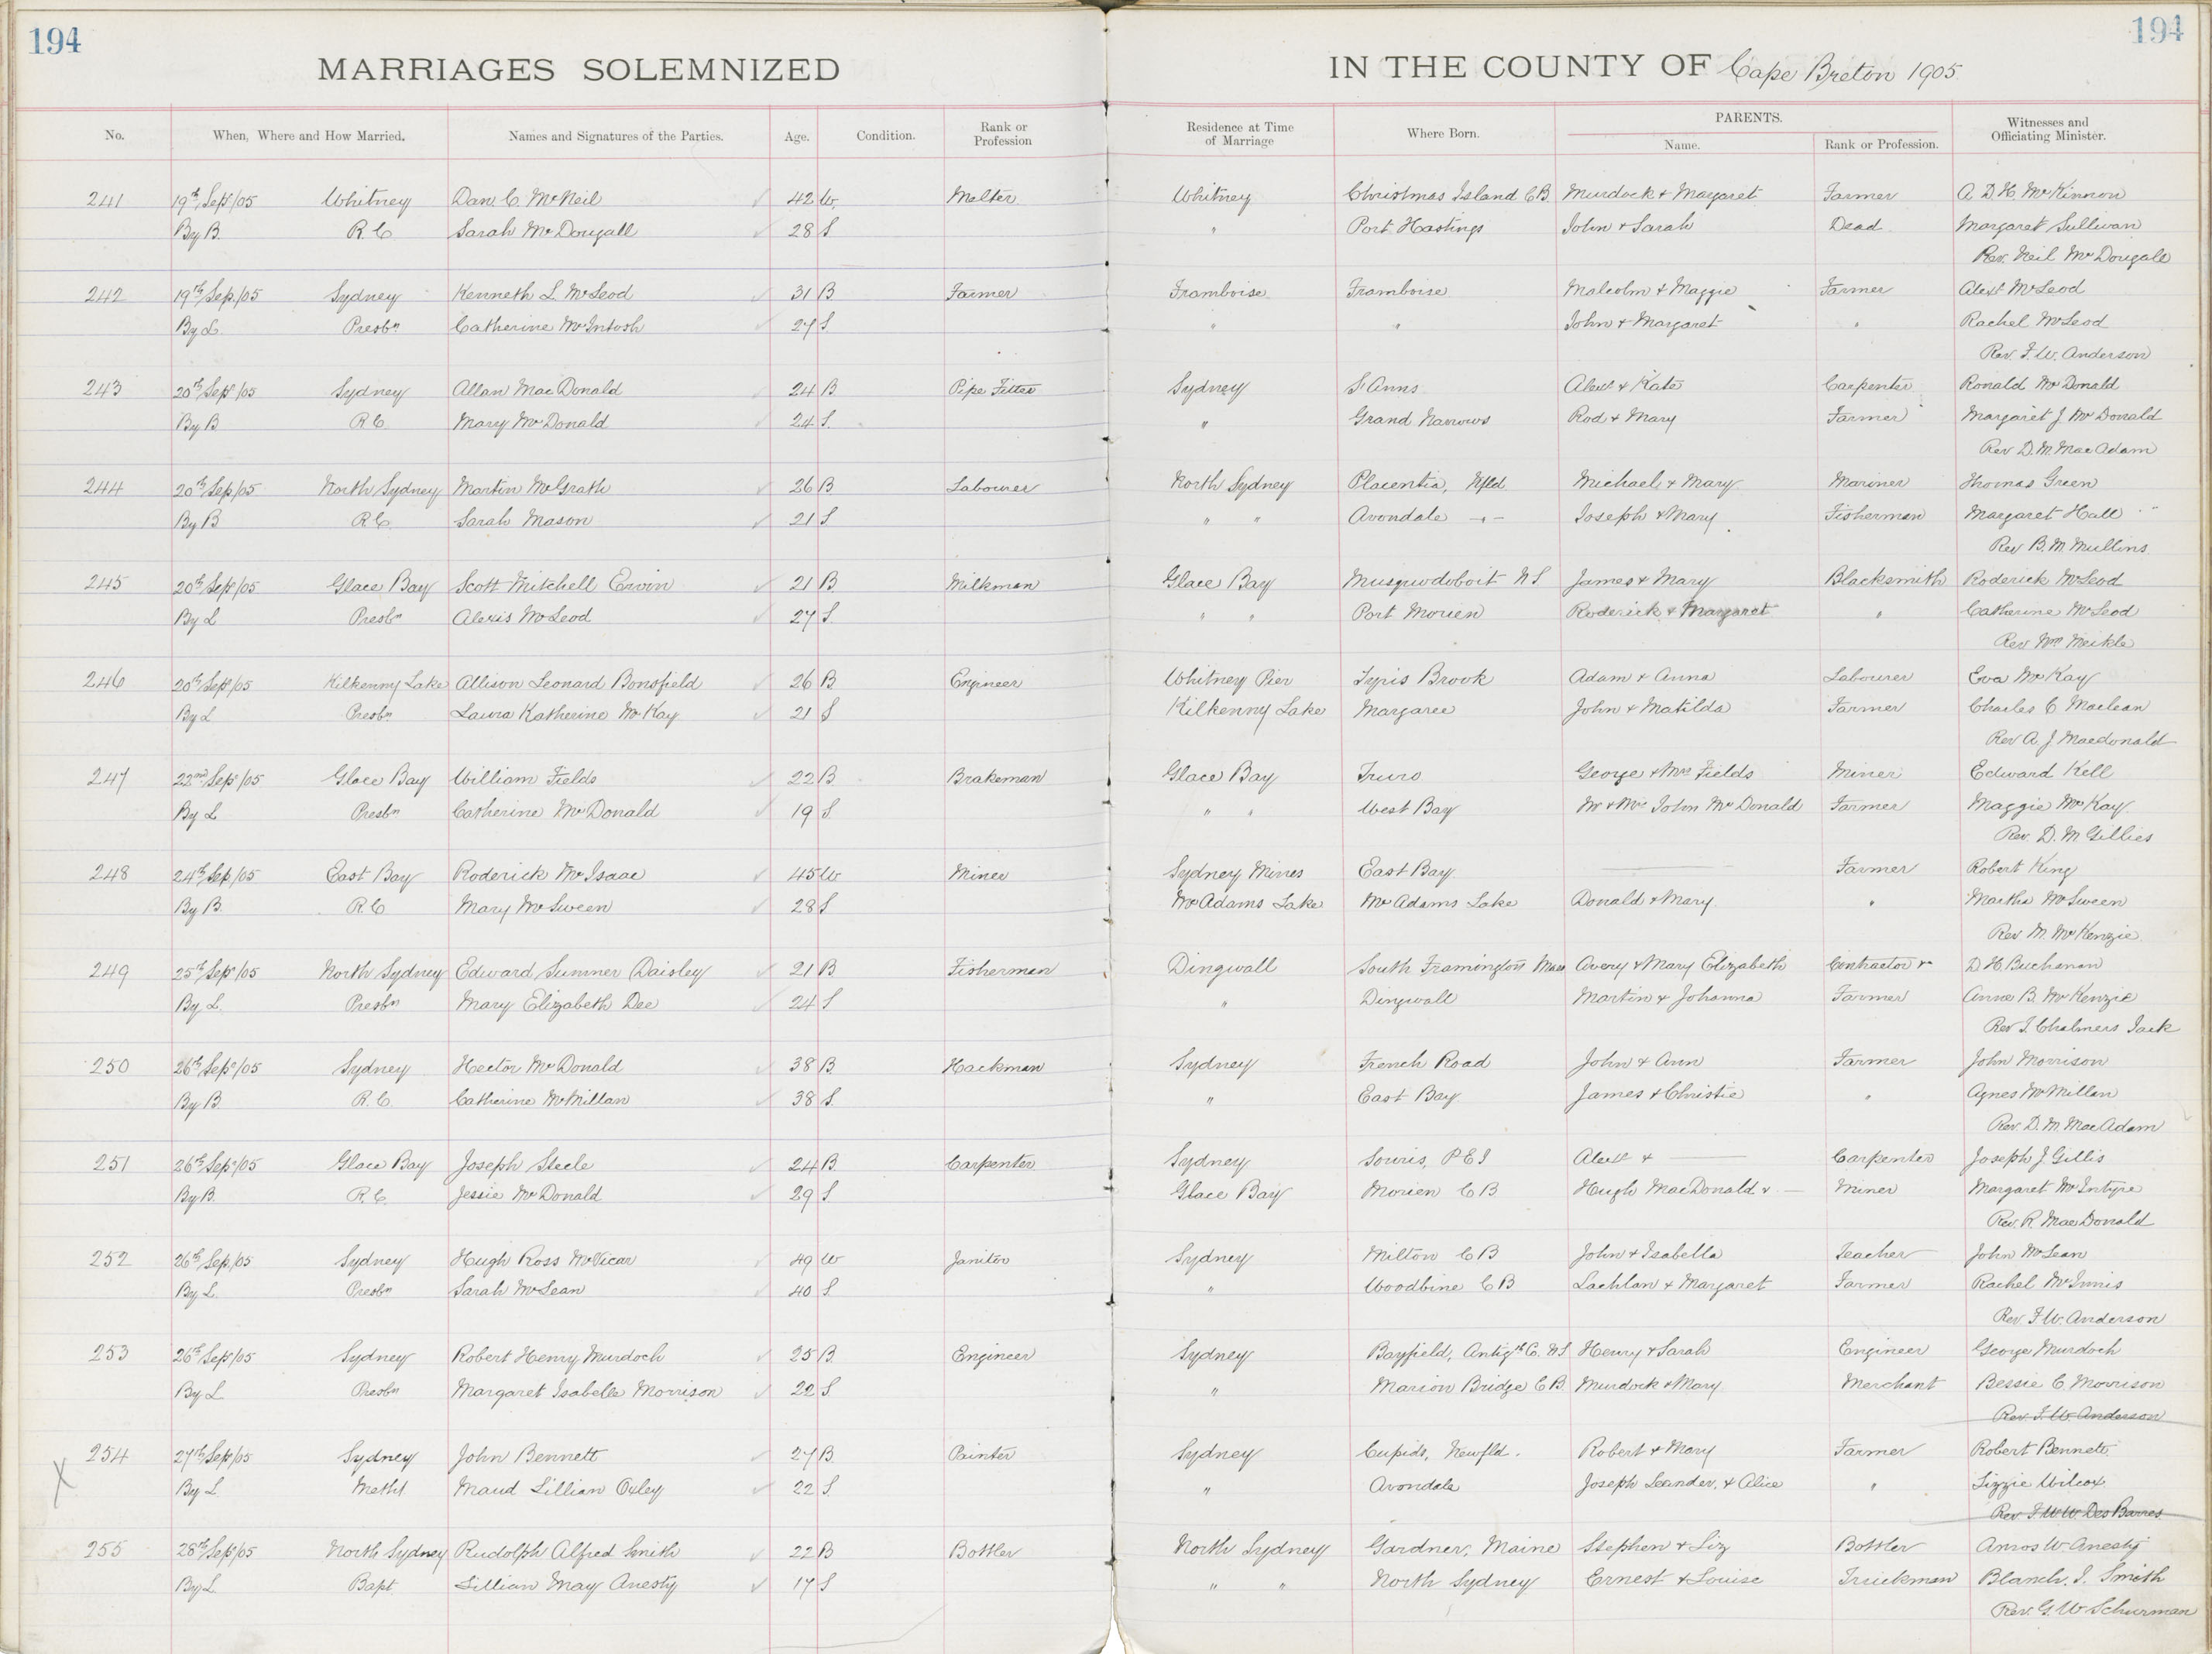 194
194
MARRIAGES SOLEMNIZED IN THE COUNTY OF Cape Breton 1905
No. When, Where and How Married. Names and Signatures of the Parties. Age. Condition. Rank or Profession Residence at Time of Marriage Where Born. PARENTS. Name. Rank or Profession. Witnesses and Officiating Minister.
241 19th Sep/05 Whitney Dan. C. McNeil 42 W. Melter Whitney Christmas Island C.B. Murdock & Margaret Farmer A. D. H. McKinnon
By B. R.C. Sarah McDougall 28 S " Port Hastings John & Sarah Dead Margaret Sullivan
Rev. Neil McDougall
242 19th Sep./05 Sydney Kenneth L. McLeod 31 B Farmer Framboise Framboise Malcolm & Maggie Farmer Alexr McLeod
By L. Presbn Catherine McIntosh 27 S. " " John & Margaret " Rachel McLeod
Rev. F. W. Anderson
243 20th Sep/05 Sydney Allan MacDonald 24 B Pipe Fitter Sydney St Anns Alexr & Kate Carpenter Ronald McDonald
By B R C Mary McDonald 24 S. " Grand Narrows Rod & Mary Farmer Margaret J. McDonald
Rev D. M. MacAdam
244 20th Sep/05 North Sydney Martin McGrath 26 B. Labourer North Sydney Placentia, Nfld. Michael & Mary Mariner Thomas Green
By B R.C. Sarah Mason 21 S " " Avondale -"- Joseph & Mary Fisherman Margaret Hall
Rev B. M. Mullins
245 20th Sep/05 Glace Bay Scott Mitchell Ervin 21 B. Milkman Glace Bay Musquodoboit N S James & Mary Blacksmith Roderick McLeod
By L Presbn Alexis McLeod 27 S. " " Port Morien Roderick & Margaret " Catherine McLeod
Rev Wm Meikle
246 20th Sep/05 Kilkenny Lake Allison Leonard Bonsfield 26 B. Engineer Whitney Pier Brook Adam & Anna Labourer Eva McKay
By L Presbn Laura Katherine McKay 21 S Kilkenny Lake Margaree John & Matilda Farmer Charles C Maclean
Rev A. J Macdonald
247 22nd Sep/05 Glace Bay William Fields 22 B. Brakeman Glace Bay Truro George & Mrs Fields Miner Edward Kell
By L Presbn Catherine McDonald 19 S. " " West Bay Mr & Mrs John McDonald Farmer Maggie McKay
Rev. D. M Gillies
248 24th Sep/05 East Bay Roderick McIsaac 45 W Miner Sydney Mines East Bay — Farmer Robert King
By B. R.C Mary McSween 28 S McAdams Lake McAdams Lake Donald & Mary " Martha McSween
Rev M. McKenzie
249 25th Sep/05 North Sydney Edward Sumner Daisley 21 B Fisherman Dingwall South Framington Mass Avery & Mary Elizabeth Contractor & D H. Buchanan
By L. Presbn Mary Elizabeth Dee 24 S " Dingwall Martin & Johanna Farmer Anna B. McKenzie
Rev T. Chalmers Jack
250 26th Sep/05 Sydney Hector McDonald 38 B. Hackman Sydney French Road John & Ann Farmer John Morrison
By B. R.C. Catherine McMillan 38 S. " East Bay James & Christie " Agnes McMillan
Rev. D. M. MacAdam
251 26th Sep/05 Glace Bay Joseph Steele 24 B. Carpenter Sydney Souris, P E I Alexr & — Carpenter Joseph J Gillis
By B. R.C. Jessie McDonald 29 S Glace Bay Morien C B. Hugh MacDonald & — Miner Margaret McIntyre
Rev. R. MacDonald
252 26th Sep/05 Sydney Hugh Ross McVicar 49 W Janitor Sydney Milton C B John & Isabella Teacher John McLean
By L. Presbn Sarah McLean 40 S. " Woodbine C B Lachlan & Margaret Farmer Rachel McInnis
Rev F. W. Anderson
253 26th Sep/05 Sydney Robert Henry Murdoch 25 B. Engineer Sydney Bayfield, Antigh C. N.S. Henry & Sarah Engineer George Murdoch
By L Presbn Margaret Isabelle Morrison 22 S " Marion Bridge C B. Murdock & Mary Merchant Bessie C. Morrison
Rev F. W. Anderson
254 27th Sep/05 Sydney John Bennett 27 B. Painter Sydney Cupids, Newfld. Robert & Mary Farmer Robert Bennett
X By L. Metht Maud Lillian Oxley 22 S. " Avondale Joseph Leander, & Alice " Lizzie Wilcox
Rev F. W W Des Barres
255 28th Sep/05 North Sydney Rudolph Alfred Smith 22 B Bottler North Sydney Gardner, Maine Stephen & Liz Bottler Amos W Anesty
By L. Bapt Lillian May Anesty 17 S " " North Sydney Ernest & Louise Truckman Blanch. I. Smith
Rev. G. W Schurman